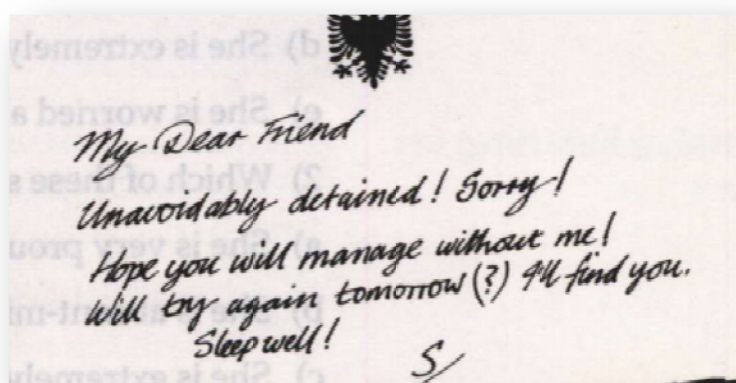 My Dear Friend
Unavoidably detained! Sorry!
Hope you will manage without me!
Will try again tomorrow (?) I'll find you.
Sleep well!
S/